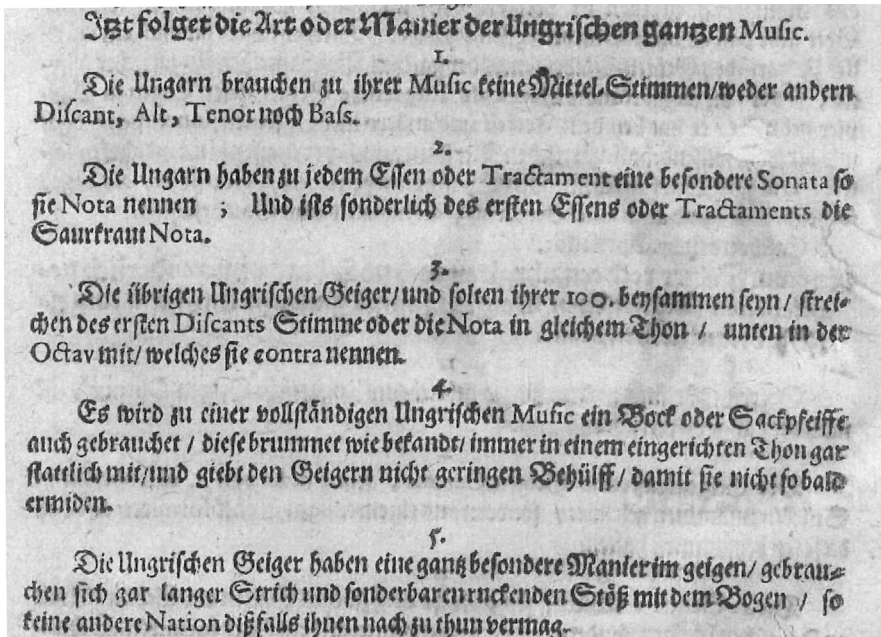 Jtzt folget die Art oder Manier der Ungrischen gantzen Music.
1.
Die Ungarn brauchen zu ihrer Music keine Mittel-Stimmen/weder andern
Discant, Alt, Tenor noch Bass.
2.
Die Ungarn haben zu jedem Essen oder Tractament eine besondere Sonata so
sie Nota nennen ; Und ists sonderlich des ersten Essens oder Tractaments die
Saurkraut Nota.
3.
Die übrigen Ungrischen Geiger/und solten ihrer 100. beysammen seyn / strei-
chen des ersten Discants Stimme oder die Nota in gleichem Thon / unten in der
Octav mit/ welches sie contra nennen.
4.
Es wird zu einer vollständigen Ungrischen Music ein Bock oder Sackpfeiffe
auch gebrauchet / diese brummet wie bekandt/ immer in einem eingerichten Thon gar
stattlich mit/und giebt den Geigern nicht geringen Behülff / damit sie nicht so bald
ermiden.
5.
Die Ungrischen Geiger haben eine gantz besondere Manier im geigen/ gebrau-
chen sich gar langer Strich und sonderbaren ruckenden Stöß mit dem Bogen / so
keine andere Nation dißfalls ihnen nach zu thun vermag.